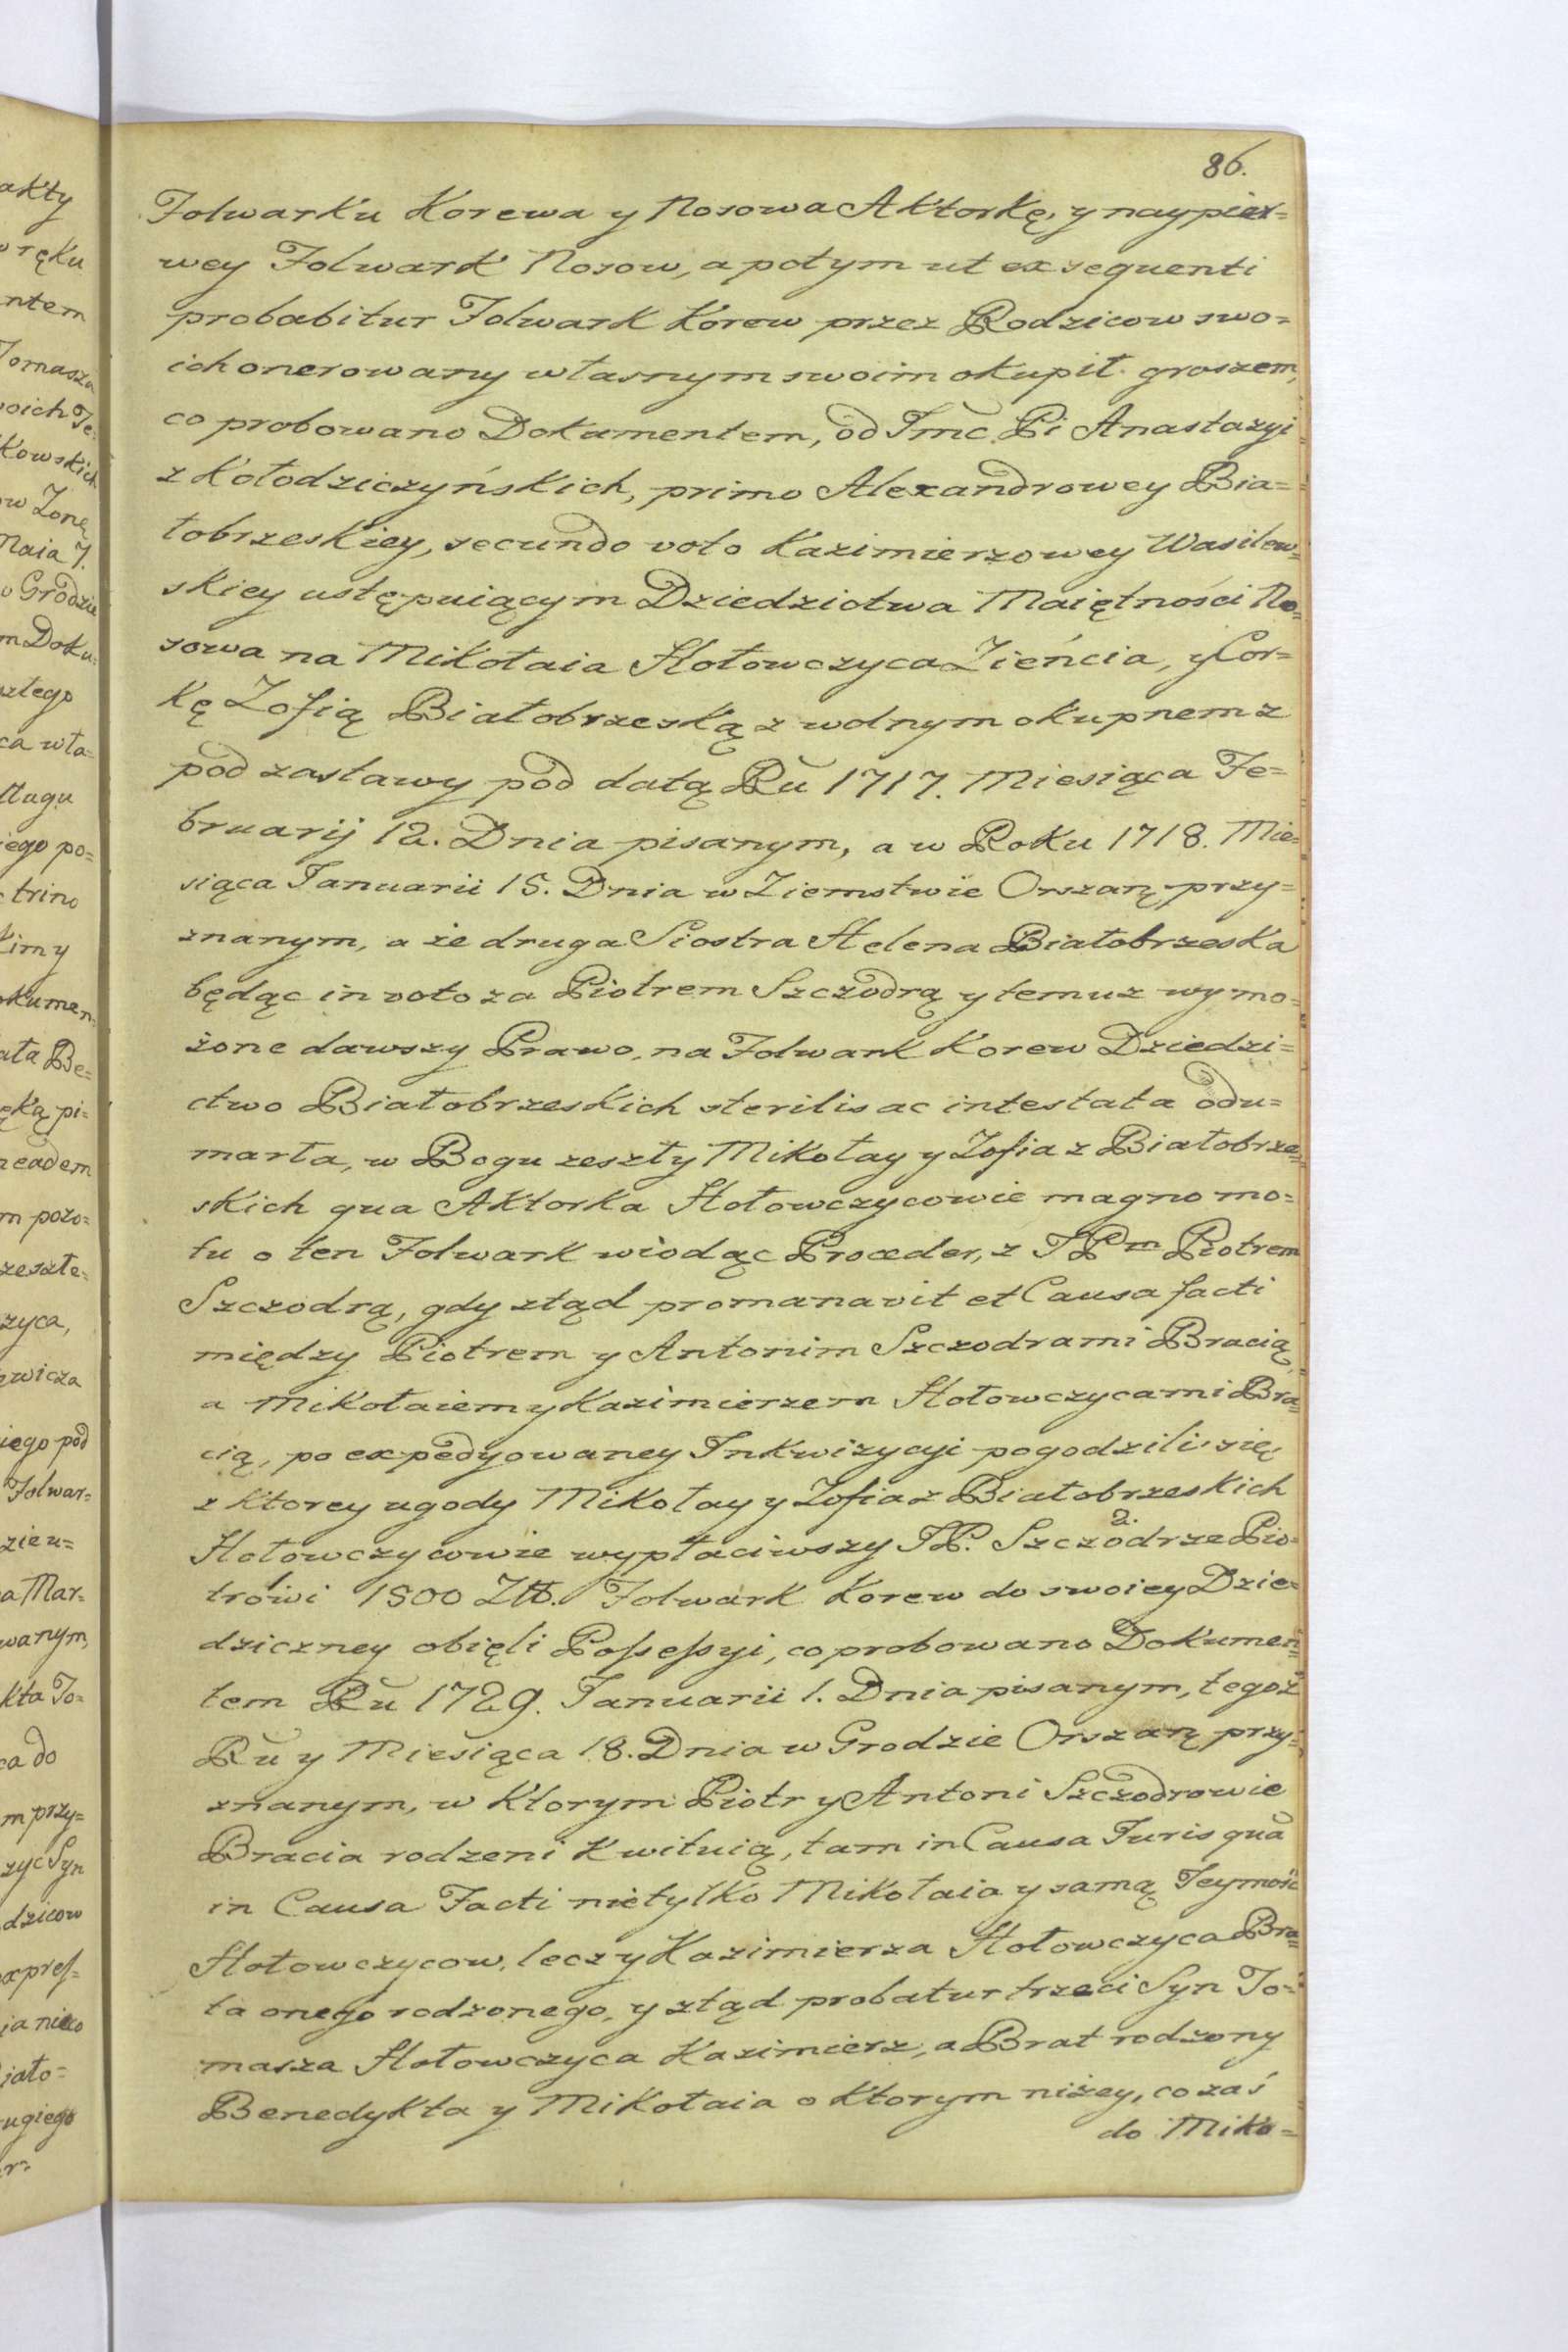 86.
Folwarku Korewa y Nosowa Aktorkę, y naypier=
wey Folwark Nosow, a potym ut ex sequenti
probabitur Folwark Korew przez Rodzicow swo=
ich onerowany własnym swoim okupił groszem,
co probowano Dokumentem, od Jmć Pi Anastazyi
z Kołodziczyńskich, primo Alexandrowey Bia=
łobrzeskiey, secundo voto Kazimierzowey Wasilew=
skiey ustępuiącym Dziedzictwa Maiętności No=
sowa na Mikołaia Hołowczyca Zieńcia, y Cor=
kę Zofią Białobrzeską z wolnym okupnem z
pod zastawy pod datą Ru 1717. Miesiąca Fe=
bruarij 12. Dnia pisanym, a w Roku 1718. Mie=
siąca Januarii 15. Dnia w Ziemstwie Orszan̄ przy=
znanym, a że druga Siostra Helena Białobrzeska
będąc in voto za Piotrem Szczodrą y temuz wymo=
żone dawszy Prawo, na Folwark Korew Dziedzi=
ctwo Białobrzeskich sterilis ac intestata odu=
marła, w Bogu zeszły Mikołay y Zofia z Białobrze=
skich qua Aktorka Hołowczycowie magno mo=
tu o ten Folwark wiodąc Proceder, z JPm Piotrem
Szczodrą, gdy ztąd promanavit et Causa facti
między Piotrem y Antonim Szczodrami Bracią,
a Mikołaiem y Kazimierzem Hołowczycami Bra=
cią, po expedyowaney Inkwizycyi pogodzili się,
z ktorey ugody Mikołay y Zofia z Białobrzeskich
Hołowczycowie wypłaciwszy JP. Szczodrze 2. Pio=
trowi 1. 1500 Złł. Folwark Korew do swoiey Dzie=
dziczney obięli Possessyi, co probowano Dokumen=
tem Ru 1729. Januarii 1. Dnia pisanym, tegoż
Ru y Miesiąca 18. Dnia w Grodzie Orszan̄ przy=
znanym, w ktorym Piotr y Antoni Szczodrowie
Bracia rodzeni kwituią, tam in Causa Juris qua
in Causa Facti nietylko Mikołaia y samą Jeymość
Hołowczycow, lecz y Kazimierza Hołowczyca Bra=
ta onego rodzonego, y ztąd probatur trzeci Syn To=
masza Hołowczyca Kazimierz, a Brat rodzony
Benedykta y Mikołaia o ktorym niżey, co zaś
do Miko=